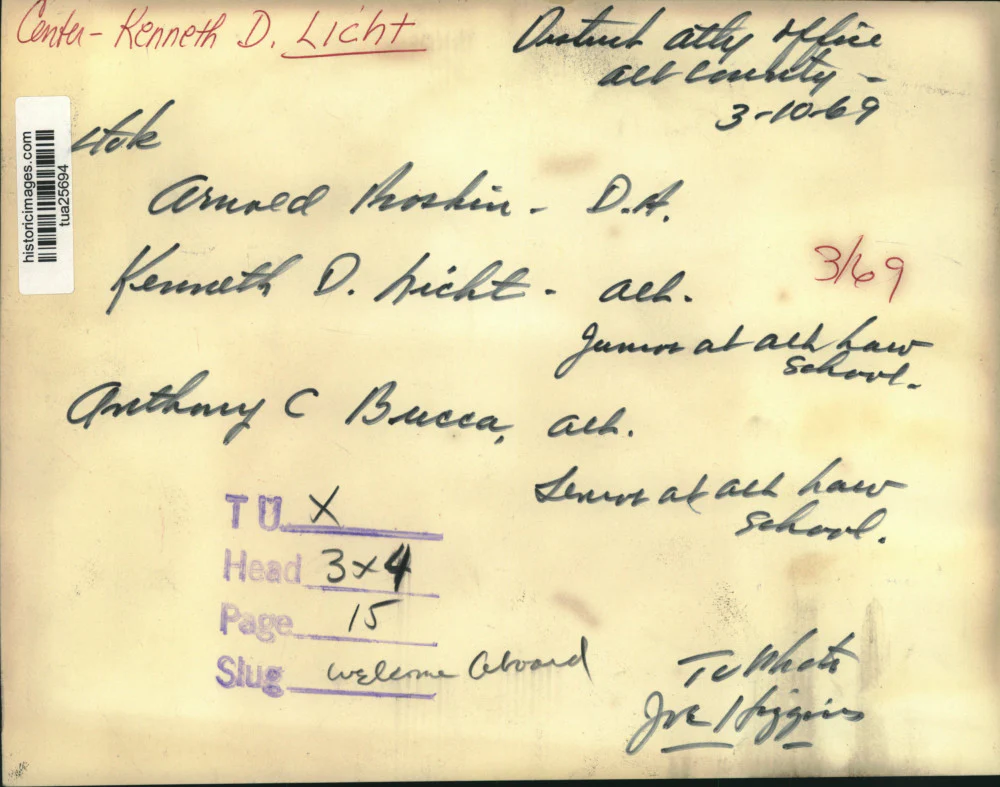 Center - Kenneth D. Licht
District atty office
alb county -
3-10-69
historicimages.com
tua25694
Arnold Proskin - D.A.
3/69
Kenneth D. Licht - alb.
Junior at alb Law
School.
Anthony C Bucca, alb.
Senior at alb Law
School.
T U X
Head 3x4
Page 15
Slug welcome aboard
TU Photo
Joe Higgins